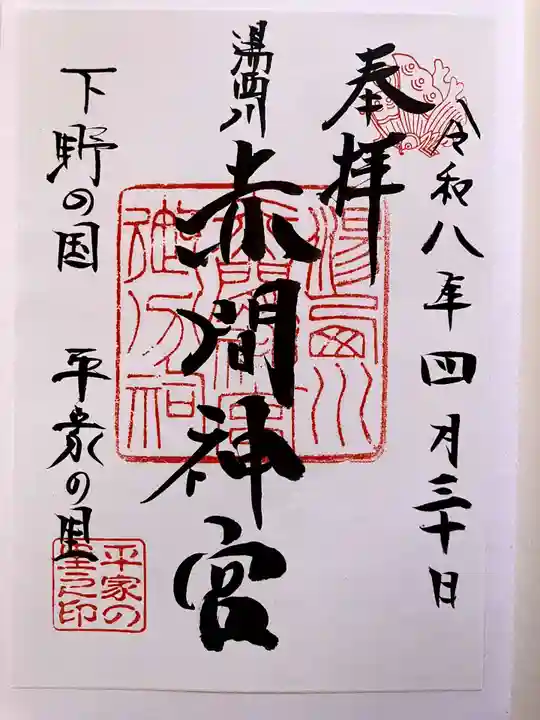 令和八年四月三十日
奉拝
湯西川
赤間神宮
下野の国 平家の里
湯西川
赤間神宮
御分祠
平家の
里之印